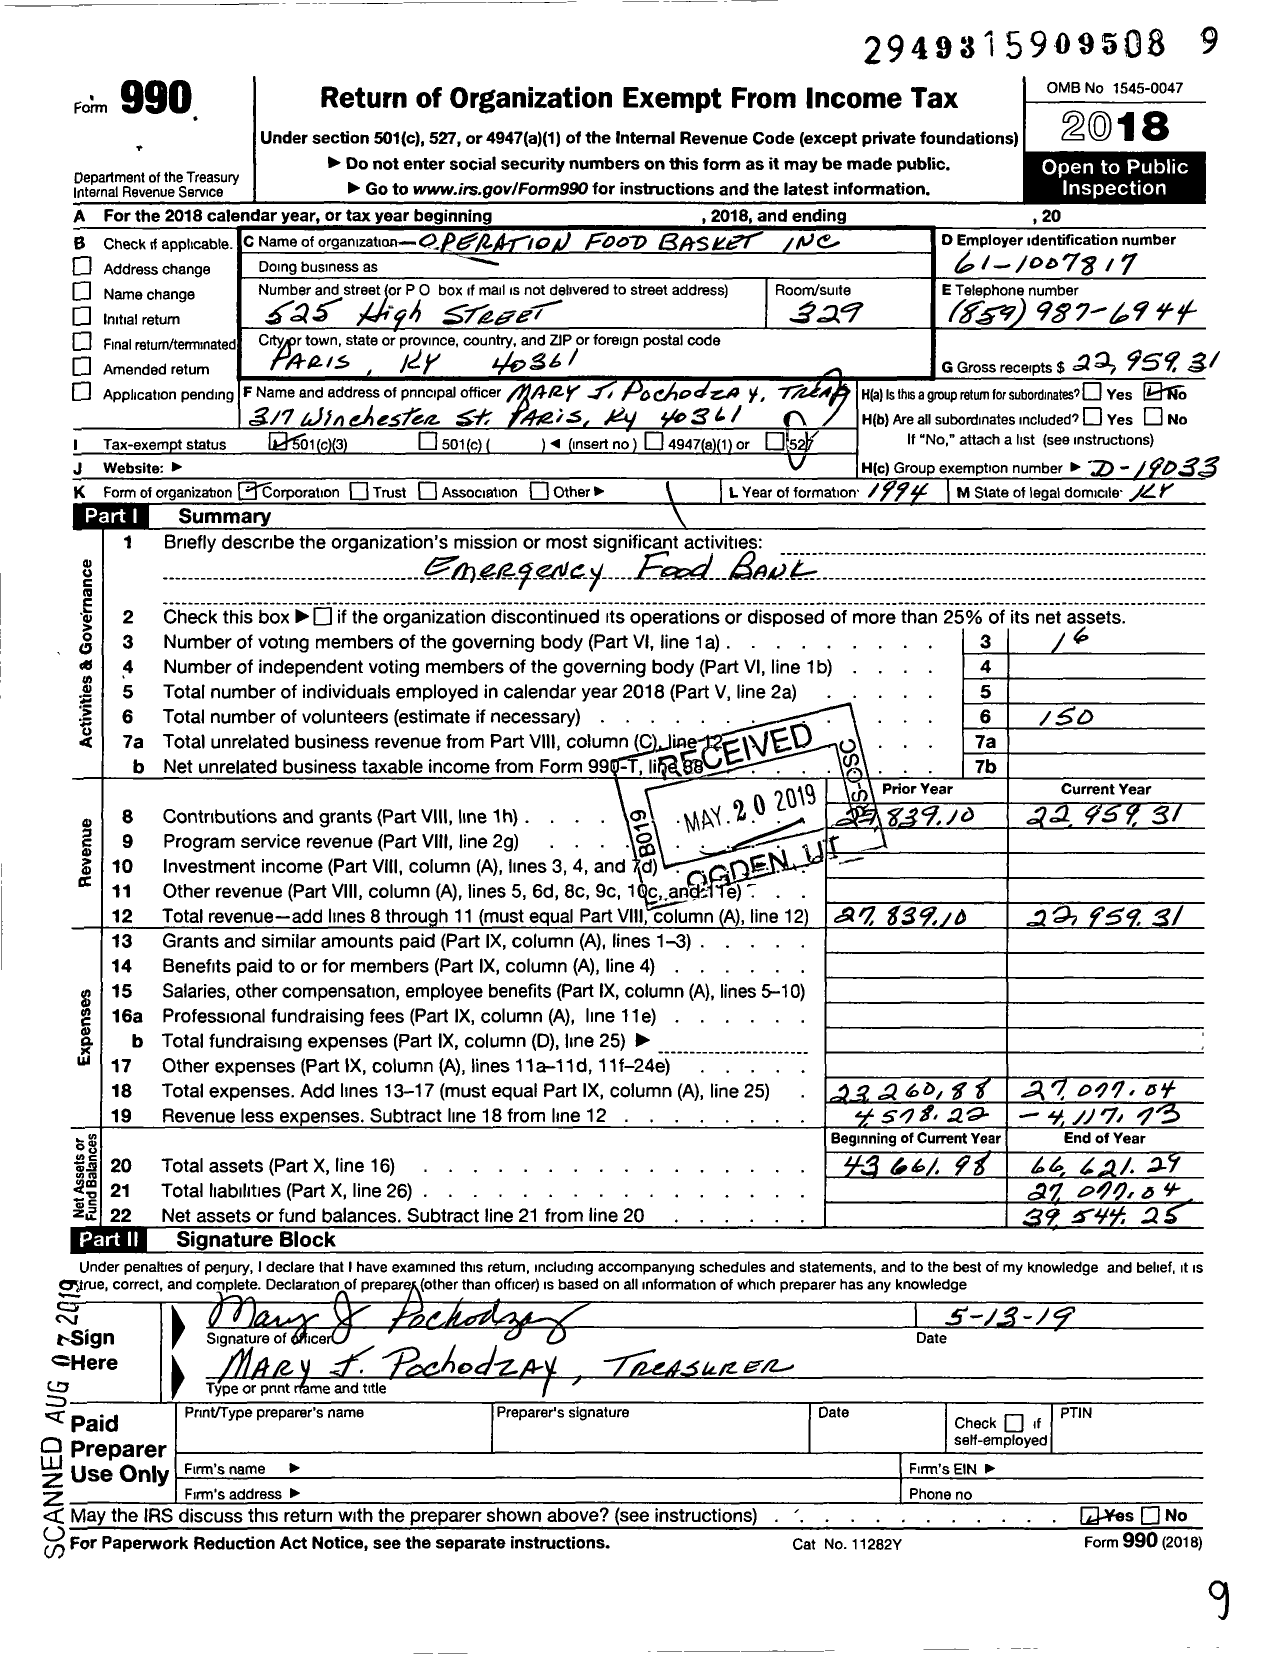 2949315909508 9
Form 990
Return of Organization Exempt From Income Tax
OMB No 1545-0047
2018
Under section 501(c), 527, or 4947(a)(1) of the Internal Revenue Code (except private foundations)
▶ Do not enter social security numbers on this form as it may be made public.
▶ Go to www.irs.gov/Form990 for instructions and the latest information.
Department of the Treasury
Internal Revenue Service
Open to Public
Inspection
A For the 2018 calendar year, or tax year beginning , 2018, and ending , 20
B Check if applicable.
Address change
Name change
Initial return
Final return/terminated
Amended return
Application pending
C Name of organization OPERATION FOOD BASKET INC
Doing business as
Number and street (or P O box if mail is not delivered to street address) Room/suite
525 High STREET 329
City or town, state or province, country, and ZIP or foreign postal code
PARIS, KY 40361
D Employer identification number
61-1007817
E Telephone number
(859) 987-6944
G Gross receipts $ 22,959.31
F Name and address of principal officer MARY J. POCHODZAY, TREAS
317 Winchester St. PARIS, Ky 40361
H(a) Is this a group return for subordinates? Yes No
H(b) Are all subordinates included? Yes No
If "No," attach a list (see instructions)
I Tax-exempt status 501(c)(3) 501(c) ( ) ◀ (insert no) 4947(a)(1) or 527
J Website: ▶
H(c) Group exemption number ▶ D-19033
K Form of organization Corporation Trust Association Other ▶
L Year of formation: 1994 M State of legal domicile: KY
Part I Summary
Activities & Governance
1 Briefly describe the organization's mission or most significant activities:
Emergency Food BANK
2 Check this box ▶ if the organization discontinued its operations or disposed of more than 25% of its net assets.
3 Number of voting members of the governing body (Part VI, line 1a) 3 16
4 Number of independent voting members of the governing body (Part VI, line 1b) 4
5 Total number of individuals employed in calendar year 2018 (Part V, line 2a) 5
6 Total number of volunteers (estimate if necessary) 6 150
7a Total unrelated business revenue from Part VIII, column (C), line 12 7a
b Net unrelated business taxable income from Form 990-T, line 38 7b
RECEIVED
B019
MAY 20 2019
IRS-OSC
OGDEN, UT
Revenue
Prior Year Current Year
8 Contributions and grants (Part VIII, line 1h) 27,839.10 22,959.31
9 Program service revenue (Part VIII, line 2g)
10 Investment income (Part VIII, column (A), lines 3, 4, and 7d)
11 Other revenue (Part VIII, column (A), lines 5, 6d, 8c, 9c, 10c, and 11e)
12 Total revenue—add lines 8 through 11 (must equal Part VIII, column (A), line 12) 27,839.10 22,959.31
Expenses
13 Grants and similar amounts paid (Part IX, column (A), lines 1–3)
14 Benefits paid to or for members (Part IX, column (A), line 4)
15 Salaries, other compensation, employee benefits (Part IX, column (A), lines 5–10)
16a Professional fundraising fees (Part IX, column (A), line 11e)
b Total fundraising expenses (Part IX, column (D), line 25) ▶
17 Other expenses (Part IX, column (A), lines 11a–11d, 11f–24e)
18 Total expenses. Add lines 13–17 (must equal Part IX, column (A), line 25) 23,260.88 27,077.04
19 Revenue less expenses. Subtract line 18 from line 12 4,578.22 -4,117.73
Net Assets or Fund Balances
Beginning of Current Year End of Year
20 Total assets (Part X, line 16) 43661.98 66,621.29
21 Total liabilities (Part X, line 26) 27,077.04
22 Net assets or fund balances. Subtract line 21 from line 20 39,544.25
Part II Signature Block
Under penalties of perjury, I declare that I have examined this return, including accompanying schedules and statements, and to the best of my knowledge and belief, it is
true, correct, and complete. Declaration of preparer (other than officer) is based on all information of which preparer has any knowledge
Sign
Here
Mary J Pochodzay 5-13-19
Signature of officer Date
MARY J. POCHODZAY, TREASURER
Type or print name and title
Paid
Preparer
Use Only
Print/Type preparer's name Preparer's signature Date Check if self-employed PTIN
Firm's name ▶ Firm's EIN ▶
Firm's address ▶ Phone no
May the IRS discuss this return with the preparer shown above? (see instructions) Yes No
For Paperwork Reduction Act Notice, see the separate instructions. Cat No. 11282Y Form 990 (2018)
SCANNED AUG 07 2019
9